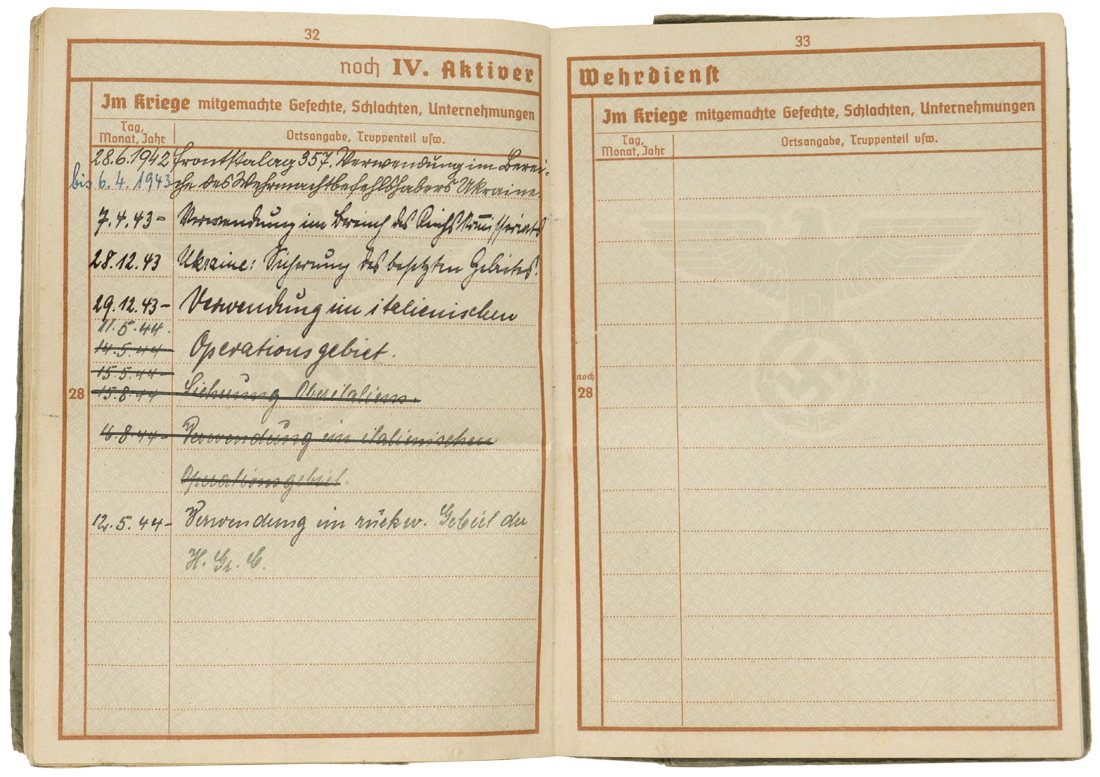 32
noch IV. Aktiver
Im Kriege mitgemachte Gefechte, Schlachten, Unternehmungen
Tag, Monat, Jahr
Ortsangabe, Truppenteil usw.
28.6.1942 Frontstalag 357. Verwendung im Berei-
bis 6.4.1943 che des Wehrmachtbefehlshabers Ukraine
7.4.43- Verwendung im Bereich des Reichskommissariats
28.12.43 Ukraine: Sicherung des besetzten Gebietes.
29.12.43- Verwendung im italienischen
11.5.44.
14.5.44 Operationsgebiet.
15.5.44-
28
15.8.44 Sicherung Oberitaliens.
16.8.44- Verwendung im italienischen
Operationsgebiet.
12.5.44- Verwendung im rückw. Gebiet der
H. Gr. C.
33
Wehrdienst
Im Kriege mitgemachte Gefechte, Schlachten, Unternehmungen
Tag, Monat, Jahr
Ortsangabe, Truppenteil usw.
noch
28